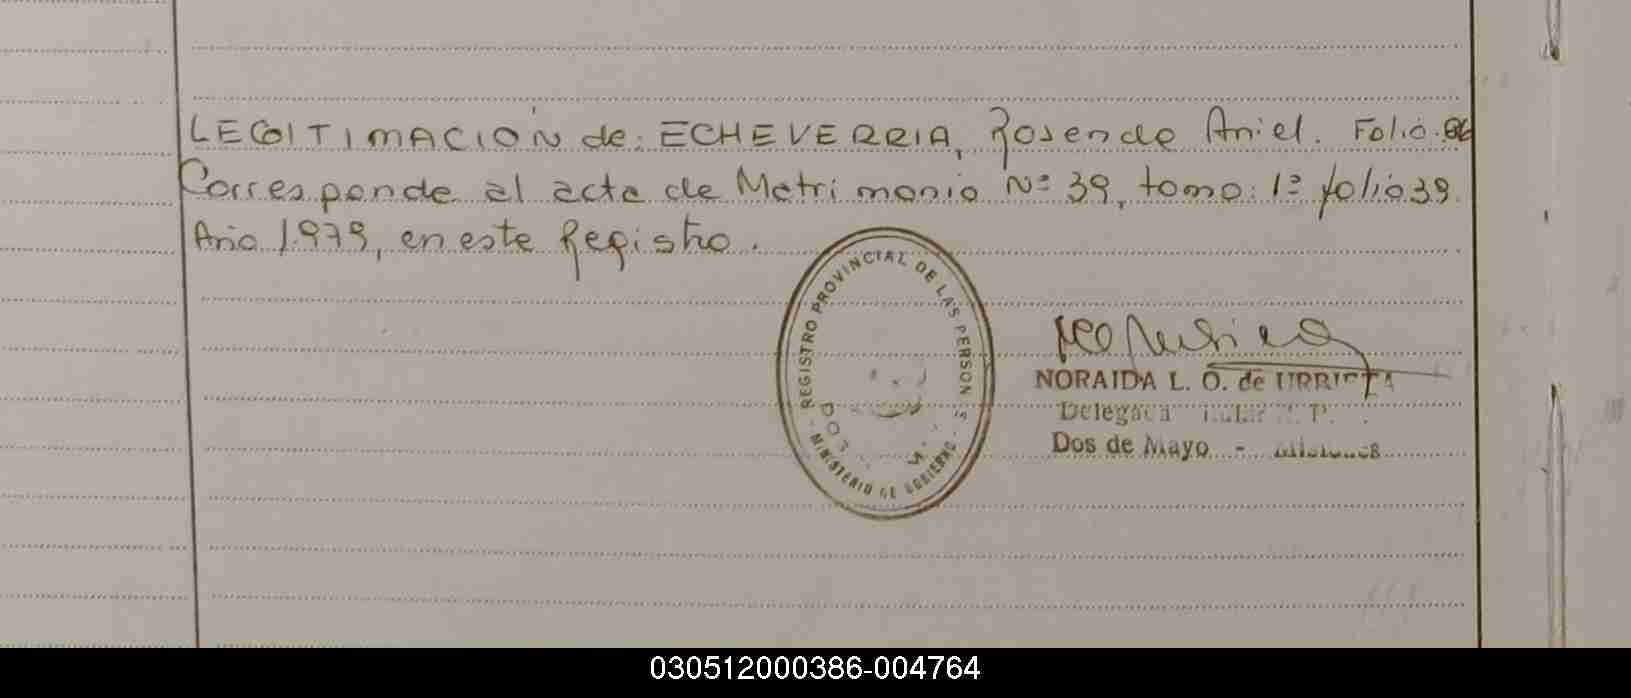 LEGITIMACIÓN de: ECHEVERRIA, Rosendo Ariel. Folio.
Corresponde al acta de Matrimonio Nº 39, tomo: 1º folio 39.
Año 1.979, en este Registro.
REGISTRO PROVINCIAL DE LAS PERSONAS
MINISTERIO DE GOBIERNO
NORAIDA L. O. de URRIETA
Delegada
Dos de Mayo - Misiones
030512000386-004764